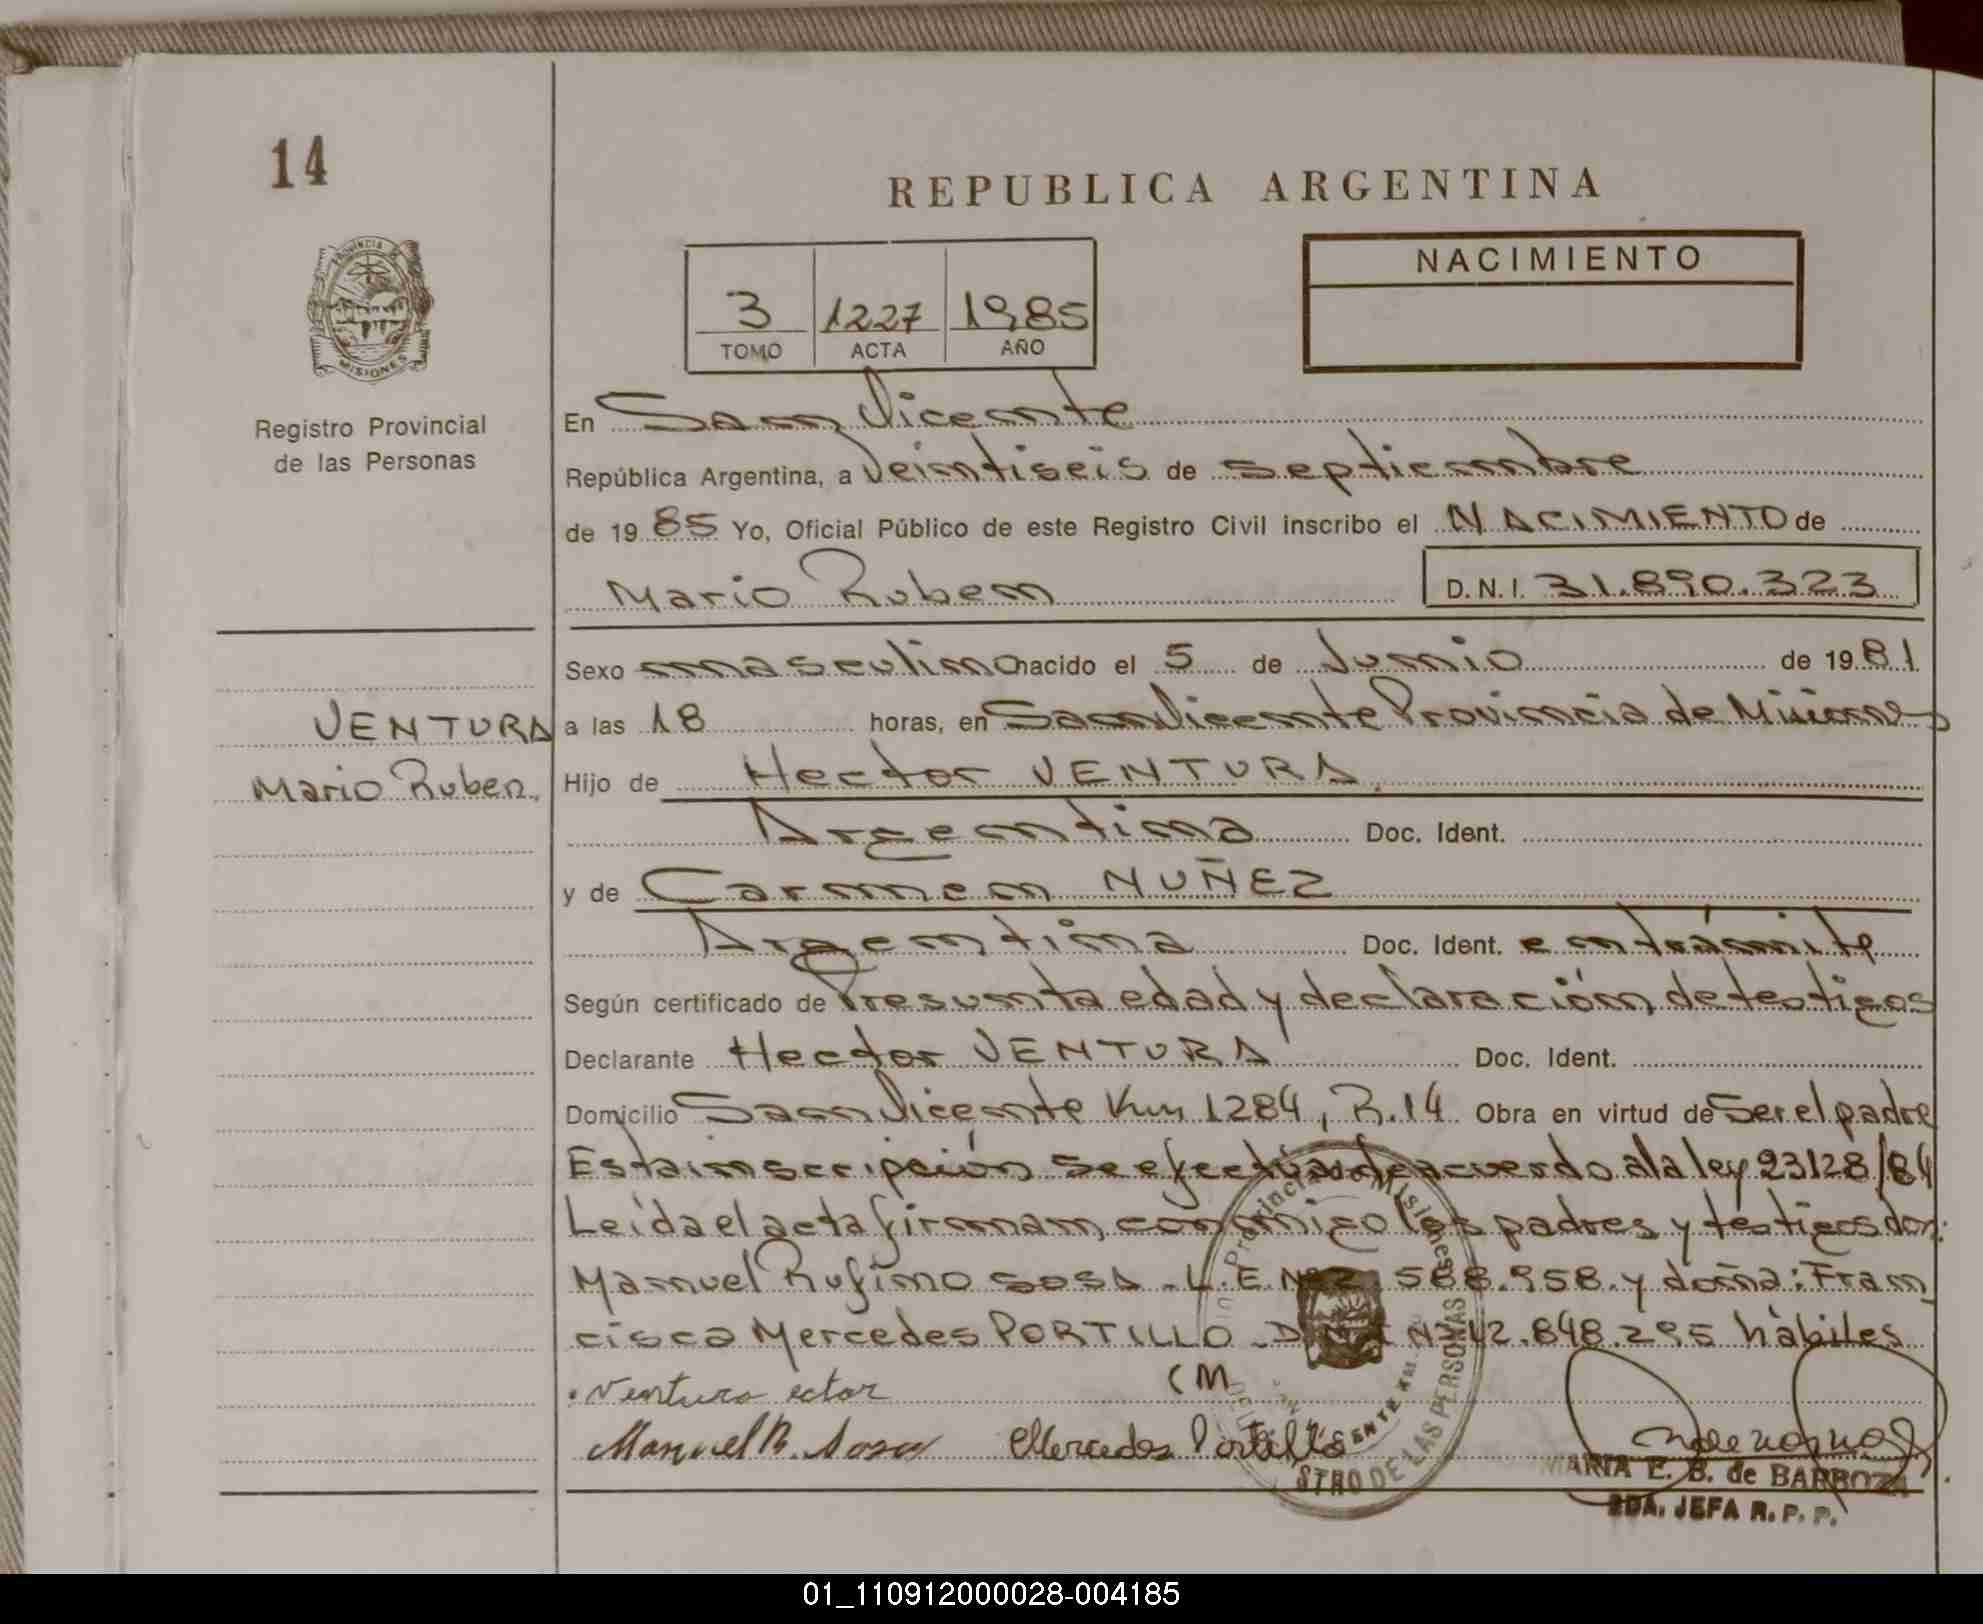 14
REPUBLICA ARGENTINA
NACIMIENTO
3 1227 1985
TOMO ACTA AÑO
PROVINCIA DE
MISIONES
Registro Provincial
de las Personas
En San Vicente
República Argentina, a Veintiseis de septiembre
de 1985 Yo, Oficial Público de este Registro Civil inscribo el NACIMIENTO de
Mario Ruben D.N.I. 31.890.323
Sexo masculino nacido el 5 de Junio de 1981
VENTURA
a las 18 horas, en San Vicente Provincia de Misiones
Mario Ruben.
Hijo de Hector VENTURA
Argentina Doc. Ident.
y de Carmen NUÑEZ
Argentina Doc. Ident. en trámite
Según certificado de Presunta edad y declaración de testigos
Declarante Hector VENTURA Doc. Ident.
Domicilio San Vicente Km 1284, R.14 Obra en virtud de Ser el padre
Esta inscripción se efectúa de acuerdo a la ley 23128/84
Leída el acta firman conmigo los padres y testigos don:
Manuel Rufino SOSA - L.E. Nº 588.958. y doña: Fran
cisca Mercedes PORTILLO - Nº 12.848.295 hábiles
Ventura ector (M
Manuel R. Sosa Mercedes Portillo
MARIA E. B. de BARBOZA
2DA. JEFA R. P. P.
Provincia de Misiones
STRO DE LAS PERSONAS
01_110912000028-004185